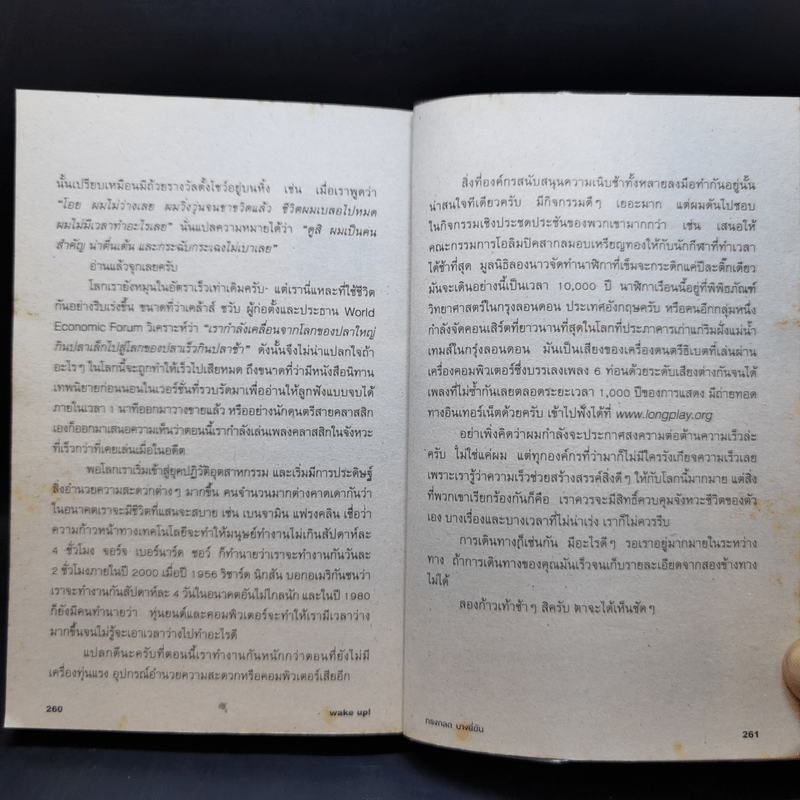 นั้นเปรียบเหมือนมีถ้วยรางวัลตั้งโชว์อยู่บนหิ้ง เช่น เมื่อเราพูดว่า
"โอย ผมไม่ว่างเลย ผมวิ่งวุ่นจนขาขวิดแล้ว ชีวิตผมเบลอไปหมด
ผมไม่มีเวลาทำอะไรเลย" นั่นแปลความหมายได้ว่า "ดูสิ ผมเป็นคน
สำคัญ น่าตื่นเต้น และกระฉับกระเฉงไม่เบาเลย"
อ่านแล้วจุกเลยครับ
โลกเรายังหมุนในอัตราเร็วเท่าเดิมครับ แต่เรานี่แหละที่ใช้ชีวิต
กันอย่างรีบเร่งขึ้น ขนาดที่ว่าเคล้าส์ ชวับ ผู้ก่อตั้งและประธาน World
Economic Forum วิเคราะห์ว่า "เรากำลังเคลื่อนจากโลกของปลาใหญ่
กินปลาเล็กไปสู่โลกของปลาเร็วกินปลาช้า" ดังนั้นจึงไม่น่าแปลกใจถ้า
อะไรๆ ในโลกนี้จะถูกทำให้เร็วไปเสียหมด ถึงขนาดที่ว่ามีหนังสือนิทาน
เทพนิยายก่อนนอนในเวอร์ชั่นที่รวบรัดมาเพื่ออ่านให้ลูกฟังแบบจบได้
ภายในเวลา 1 นาทีออกมาวางขายแล้ว หรืออย่างนักดนตรีสายคลาสสิก
เองก็ออกมาเสนอความเห็นว่าตอนนี้เรากำลังเล่นเพลงคลาสสิกในจังหวะ
ที่เร็วกว่าที่เคยเล่นเมื่อในอดีต
พอโลกเราเริ่มเข้าสู่ยุคปฏิวัติอุตสาหกรรม และเริ่มมีการประดิษฐ์
สิ่งอำนวยความสะดวกต่างๆ มากขึ้น คนจำนวนมากต่างคาดเดากันว่า
ในอนาคตเราจะมีชีวิตที่แสนจะสบาย เช่น เบนจามิน แฟรงคลิน เชื่อว่า
ความก้าวหน้าทางเทคโนโลยีจะทำให้มนุษย์ทำงานไม่เกินสัปดาห์ละ
4 ชั่วโมง จอร์จ เบอร์นาร์ด ชอว์ ก็ทำนายว่าเราจะทำงานกันวันละ
2 ชั่วโมงภายในปี 2000 เมื่อปี 1956 ริชาร์ด นิกสัน บอกอเมริกันชนว่า
เราจะทำงานกันสัปดาห์ละ 4 วันในอนาคตอันไม่ไกลนัก และในปี 1980
ก็ยังมีคนทำนายว่า หุ่นยนต์และคอมพิวเตอร์จะทำให้เรามีเวลาว่าง
มากขึ้นจนไม่รู้จะเอาเวลาว่างไปทำอะไรดี
แปลกดีนะครับที่ตอนนี้เราทำงานกันหนักกว่าตอนที่ยังไม่มี
เครื่องทุ่นแรง อุปกรณ์อำนวยความสะดวกหรือคอมพิวเตอร์เสียอีก
260
wake up!
สิ่งที่องค์กรสนับสนุนความเนิบช้าทั้งหลายลงมือทำกันอยู่นั้น
น่าสนใจทีเดียวครับ มีกิจกรรมดีๆ เยอะมาก แต่ผมดันไปชอบ
ในกิจกรรมเชิงประชดประชันของพวกเขามากกว่า เช่น เสนอให้
คณะกรรมการโอลิมปิคสากลมอบเหรียญทองให้กับนักกีฬาที่ทำเวลา
ได้ช้าที่สุด มูลนิธิลองนาวจัดทำนาฬิกาที่เข็มจะกระดิกแค่ปีละติ๊กเดียว
มันจะเดินอย่างนี้เป็นเวลา 10,000 ปี นาฬิกาเรือนนี้อยู่ที่พิพิธภัณฑ์
วิทยาศาสตร์ในกรุงลอนดอน ประเทศอังกฤษครับ หรือคนอีกกลุ่มหนึ่ง
กำลังจัดคอนเสิร์ตที่ยาวนานที่สุดในโลกที่ประภาคารเก่าแก่ริมฝั่งแม่น้ำ
เทมส์ในกรุ่งลอนดอน มันเป็นเสียงของเครื่องดนตรีธิเบตที่เล่นผ่าน
เครื่องคอมพิวเตอร์ซึ่งบรรเลงเพลง 6 ท่อนด้วยระดับเสียงต่างกันจนได้
เพลงที่ไม่ซ้ำกันเลยตลอดระยะเวลา 1,000 ปีของการแสดง มีถ่ายทอด
ทางอินเทอร์เน็ตด้วยครับ เข้าไปฟังได้ที่ www.longplay.org
อย่าเพิ่งคิดว่าผมกำลังจะประกาศสงครามต่อต้านความเร็วล่ะ
ครับ ไม่ใช่แค่ผม แต่ทุกองค์กรที่ว่ามาก็ไม่มีใครรังเกียจความเร็วเลย
เพราะเรารู้ว่าความเร็วช่วยสร้างสรรค์สิ่งดีๆ ให้กับโลกนี้มากมาย แต่สิ่ง
ที่พวกเขาเรียกร้องกันก็คือ เราควรจะมีสิทธิ์ควบคุมจังหวะชีวิตของตัว
เอง บางเรื่องและบางเวลาที่ไม่น่าเร่ง เราก็ไม่ควรรีบ
การเดินทางก็เช่นกัน มีอะไรดีๆ รอเราอยู่มากมายในระหว่าง
ทาง ถ้าการเดินทางของคุณมันเร็วจนเก็บรายละเอียดจากสองข้างทาง
ไม่ได้
ลองก้าวเท้าช้าๆ สิครับ ตาจะได้เห็นชัดๆ
ทรงกลด บางยี่ขัน
261